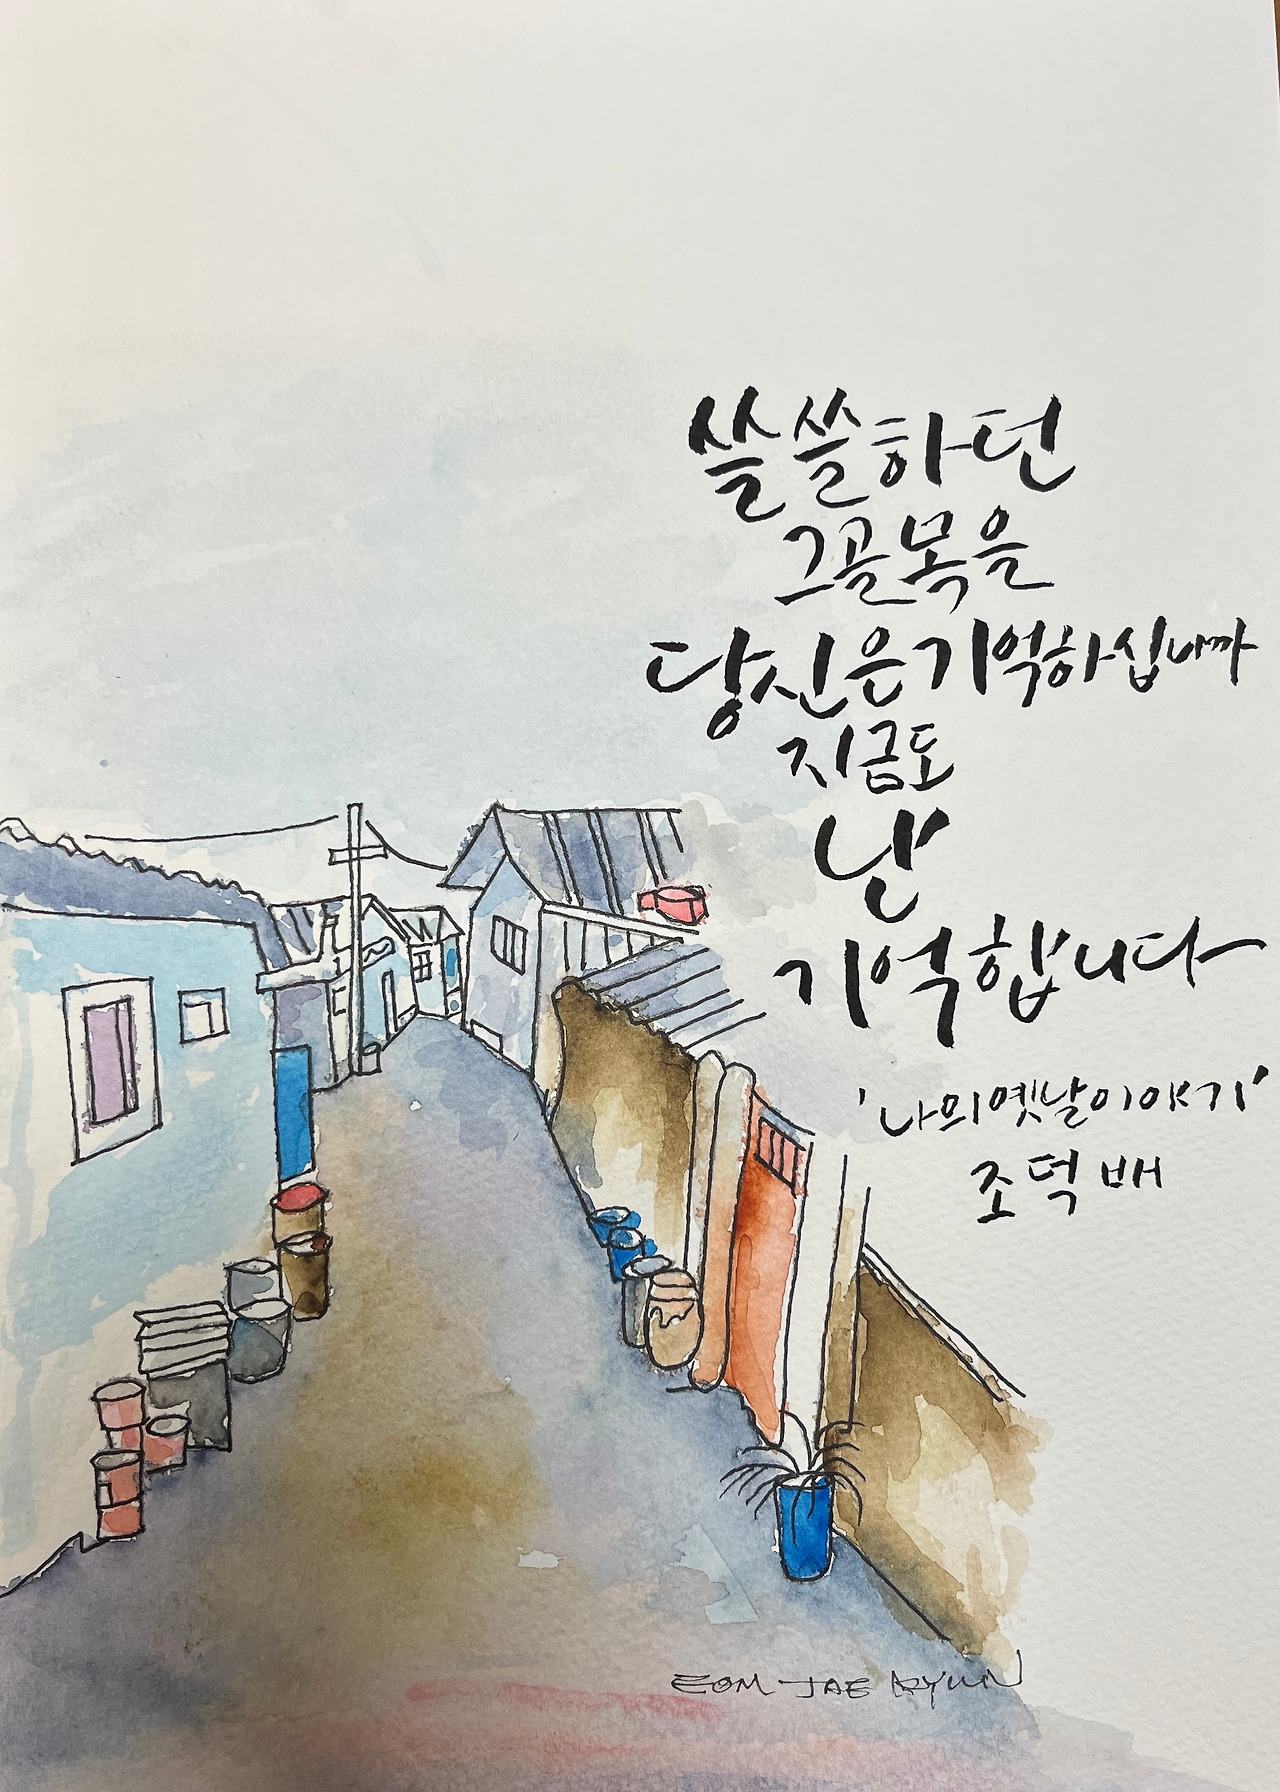 쓸쓸하던
그골목을
당신은기억하십니까
지금도
난
기억합니다
'나의옛날이야기'
조덕배
EOM JAE RYUN